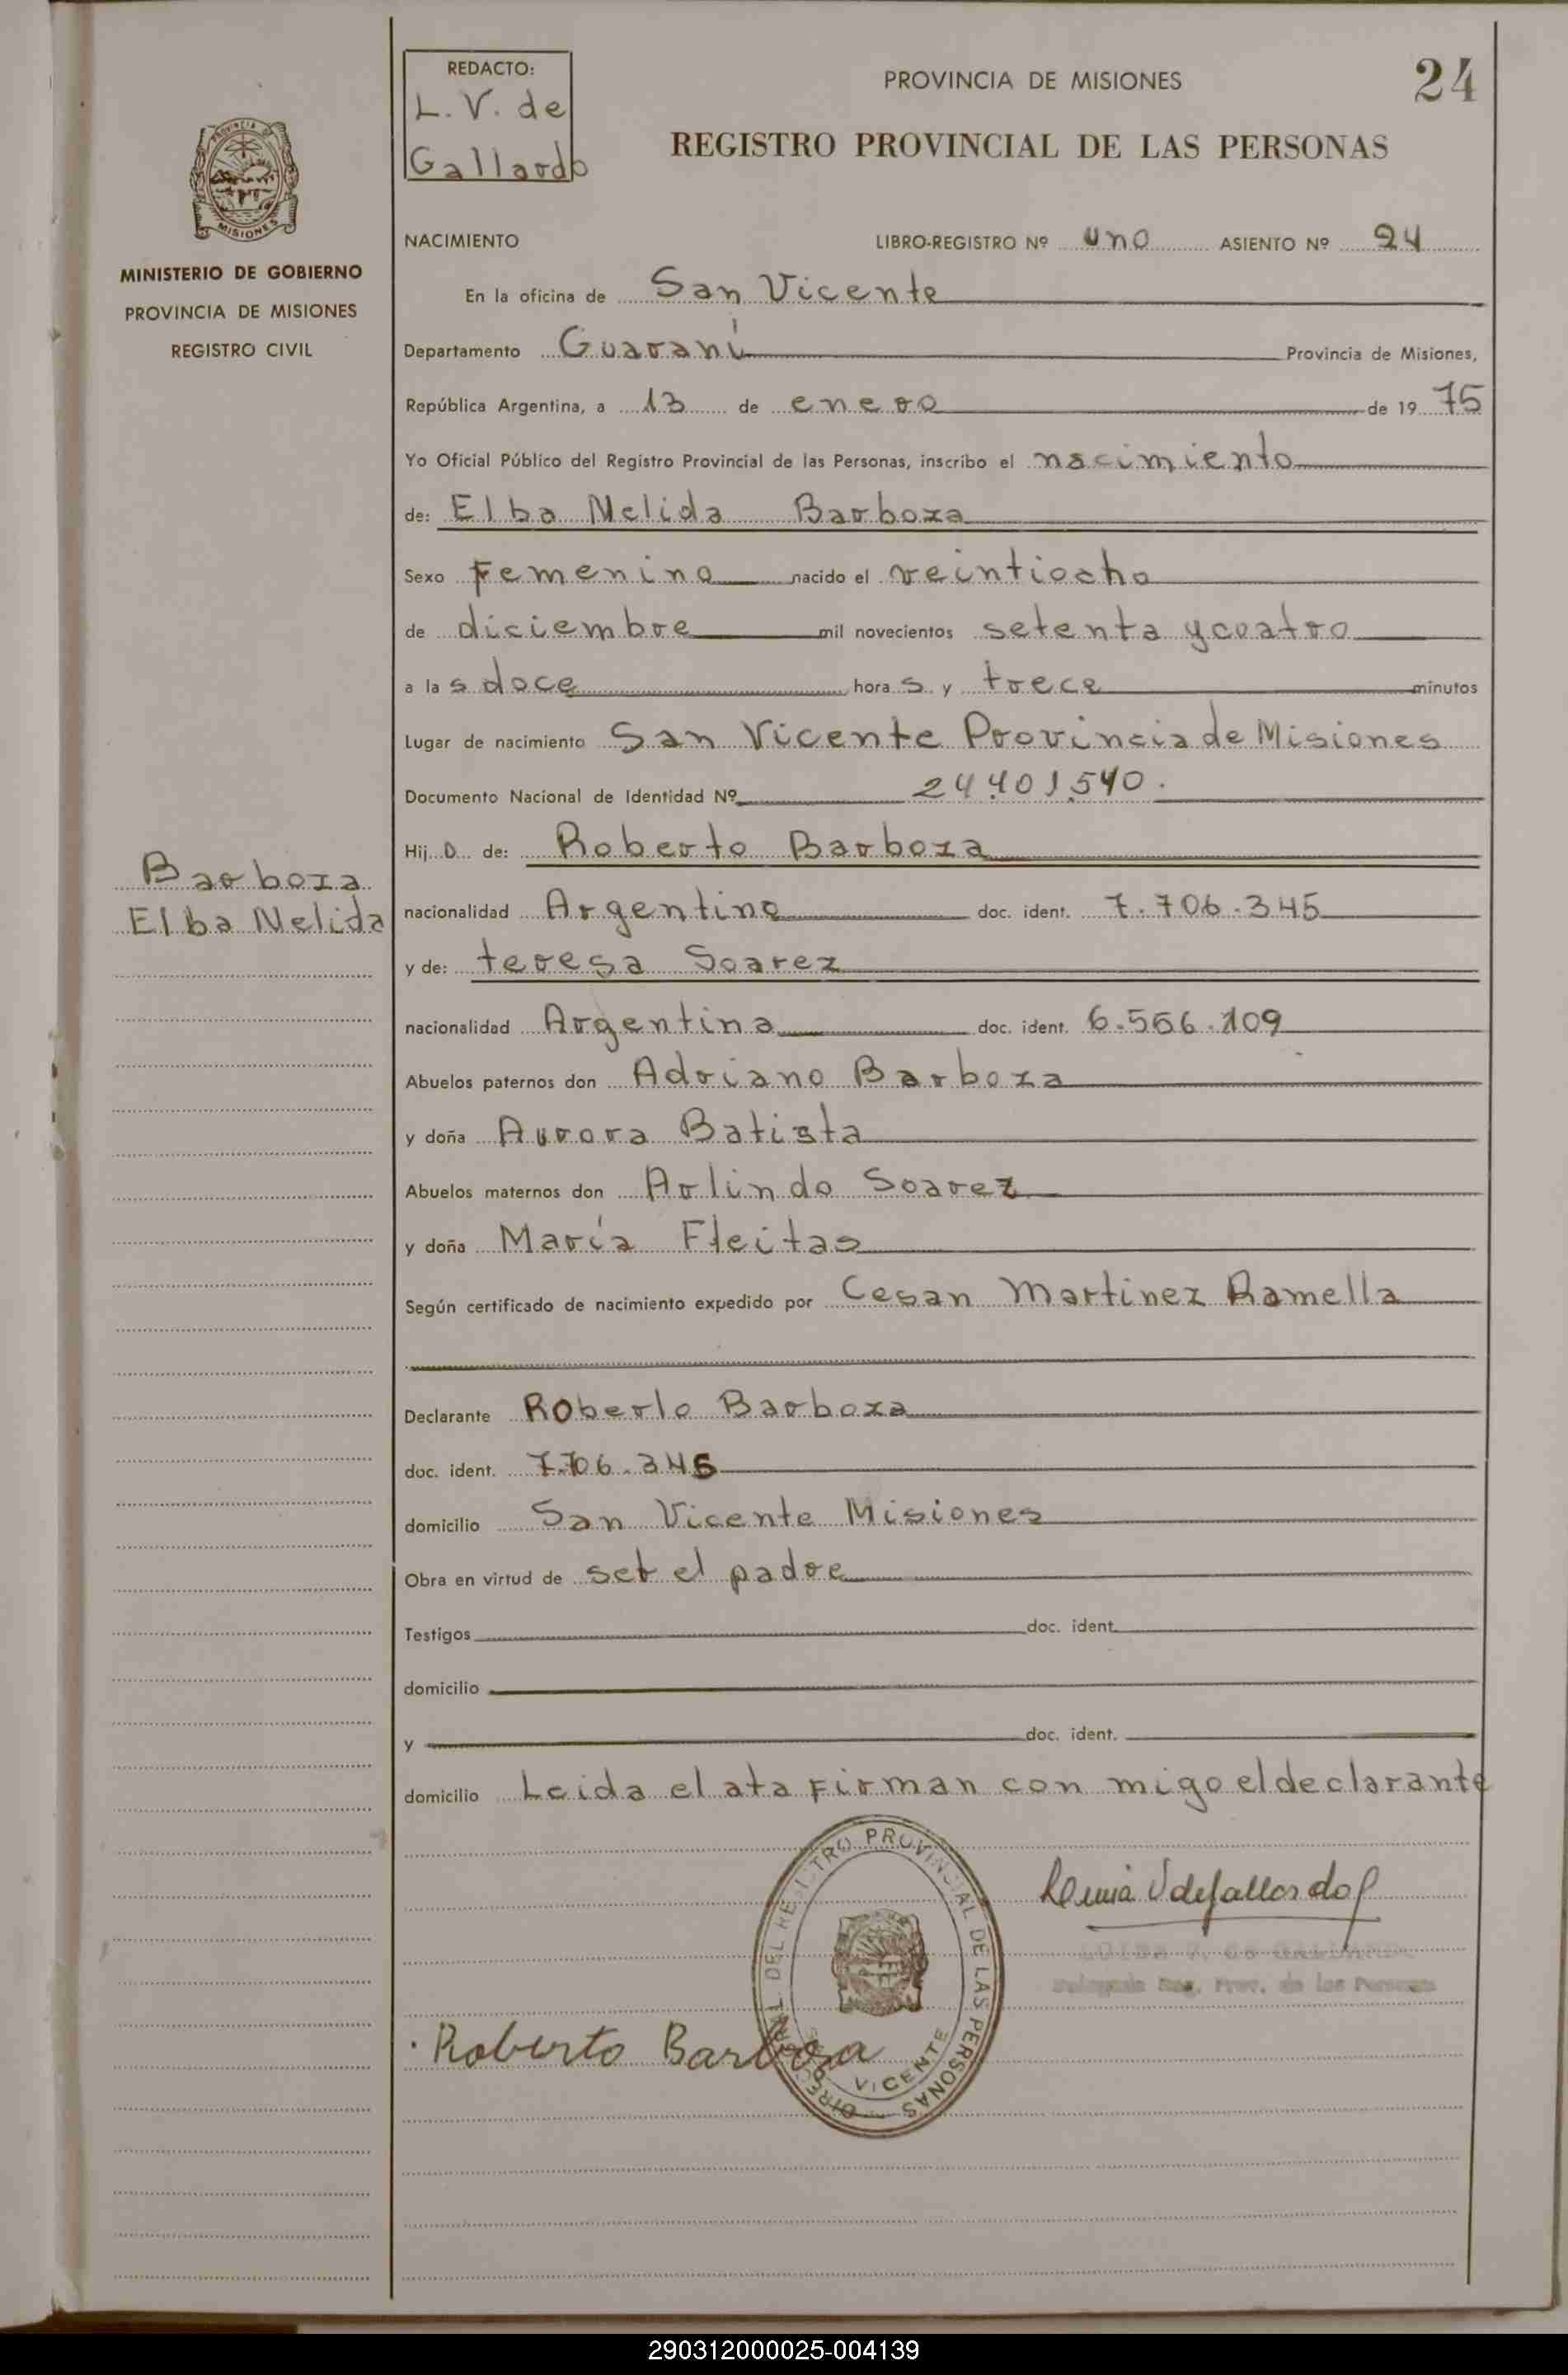 REDACTO:
L. V. de
Gallardo
PROVINCIA DE MISIONES
24
REGISTRO PROVINCIAL DE LAS PERSONAS
MISIONES
MINISTERIO DE GOBIERNO
PROVINCIA DE MISIONES
REGISTRO CIVIL
NACIMIENTO LIBRO-REGISTRO Nº uno ASIENTO Nº 24
En la oficina de San Vicente
Departamento Guaraní Provincia de Misiones,
República Argentina, a 13 de enero de 19 75
Yo Oficial Público del Registro Provincial de las Personas, inscribo el nacimiento
de: Elba Nelida Barboza
Sexo Femenino nacido el veintiocho
de diciembre mil novecientos setenta y cuatro
a la s doce hora s y trece minutos
Lugar de nacimiento San Vicente Provincia de Misiones
Documento Nacional de Identidad Nº 24.401.540.
Hij o de: Roberto Barboza
Barboza
Elba Nelida
nacionalidad Argentino doc. ident. 7.706.345
y de: teresa Soarez
nacionalidad Argentina doc. ident. 6.556.109
Abuelos paternos don Adriano Barboza
y doña Aurora Batista
Abuelos maternos don Arlindo Soarez
y doña María Fleitas
Según certificado de nacimiento expedido por Cesan Martinez Ramella
Declarante Roberto Barboza
doc. ident. 7.706.345
domicilio San Vicente Misiones
Obra en virtud de ser el padre
Testigos doc. ident.
domicilio
y doc. ident.
domicilio Leida el ata Firman con migo el declarante
DEL REGISTRO PROVINCIAL DE LAS PERSONAS
VICENTE
Reg. Prov. de las Personas
Roberto Barboza
290312000025-004139